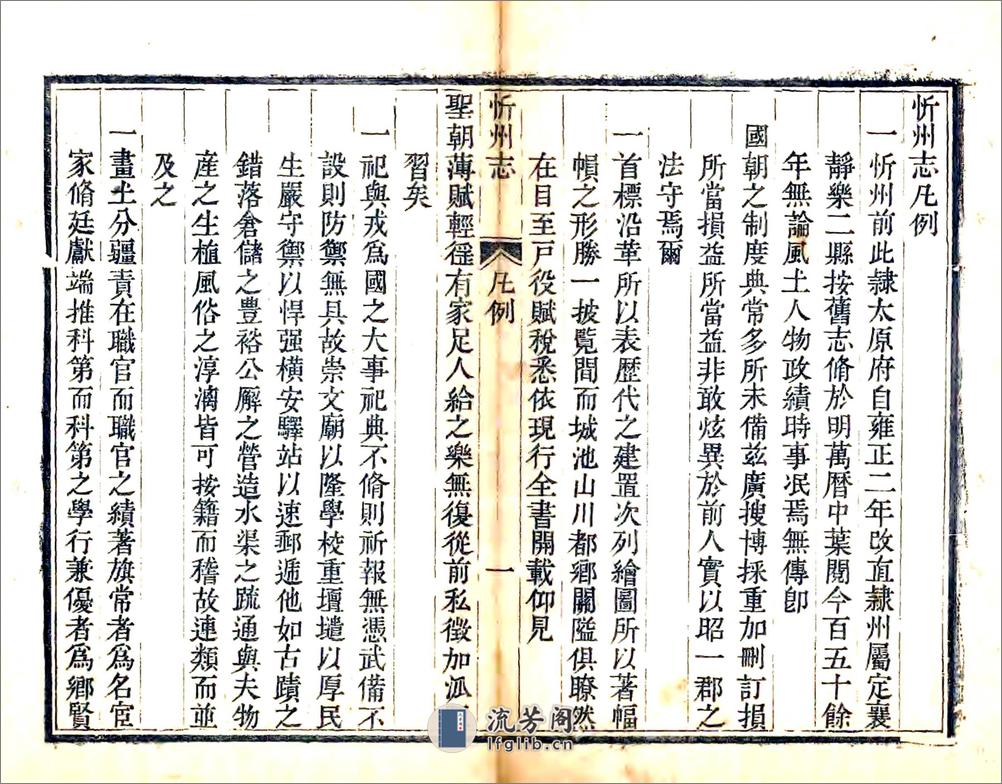 忻州志凡例
一忻州前此隸太原府自雍正二年改直隸州屬定襄
靜樂二縣按舊志脩於明萬曆中葉閱今百五十餘
年無論風土人物政績時事泯焉無傳卽
國朝之制度典常多所未備茲廣搜博採重加刪訂損
所當損益所當益非敢炫異於前人實以昭一郡之
法守焉爾
一首標沿革所以表歷代之建置次列繪圖所以著幅
幀之形勝一披覧間而城池山川都鄉關隘俱瞭然
在目至戸役賦稅悉依現行全書開載仰見
忻州志 凡例 一
聖朝薄賦輕徭有家足人給之樂無復從前私徵加派
習矣
一祀與戎爲國之大事祀典不脩則祈報無憑武備不
設則防禦無具故崇文廟以隆學校重壇壝以厚民
生嚴守禦以悍强橫安驛站以速郵遞他如古蹟之
錯落倉儲之豐裕公廨之營造水渠之疏通與夫物
產之生植風俗之淳漓皆可按籍而稽故連類而並
及之
一畫土分疆責在職官而職官之績著旗常者爲名宦
家脩廷獻端推科第而科第之學行兼優者爲鄉賢
流芳阁
lfglib.cn